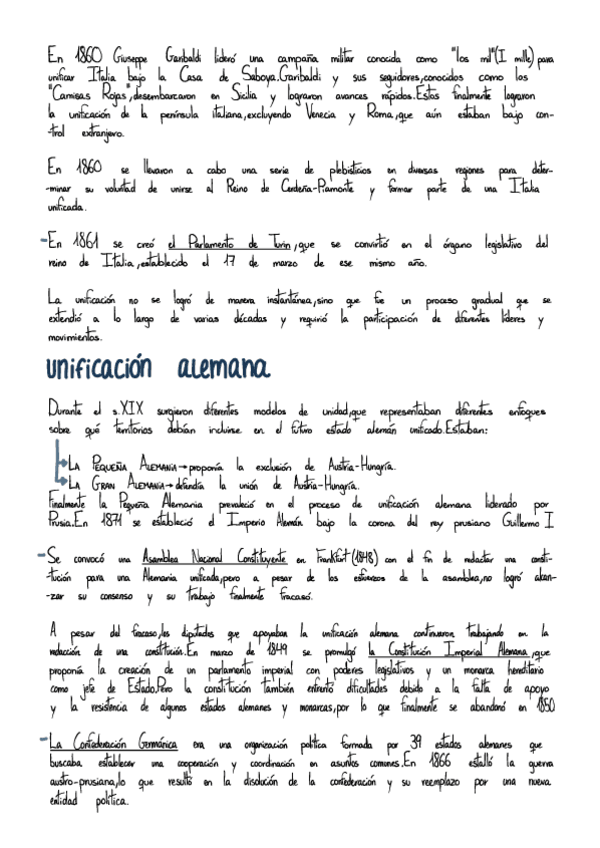 En 1860 Giuseppe Garibaldi lideró una campaña militar conocida como "los mil"(I mille) para
unificar Italia bajo la Casa de Saboya.Garibaldi y sus seguidores,conocidos como los
"Camisas Rojas",desembarcaron en Sicilia y lograron avances rápidos.Estos finalmente lograron
la unificación de la península italiana,excluyendo Venecia y Roma,que aún estaban bajo con-
-trol extranjero.
En 1860 se llevaron a cabo una serie de plebisticios en diversas regiones para deter-
-minar su voluntad de unirse al Reino de Cerdeña-Piamonte y formar parte de una Italia
unificada.
-En 1861 se creó el Parlamento de Turín,que se convirtió en el órgano legislativo del
reino de Italia,establecido el 17 de marzo de ese mismo año.
La unificación no se logró de manera instantánea,sino que fue un proceso gradual que se
extendió a lo largo de varias décadas y requirió la participación de diferentes líderes y
movimientos.
unificación alemana
Durante el s.XIX surgieron diferentes modelos de unidad,que representaban diferentes enfoques
sobre qué territorios debían incluirse en el futuro estado alemán unificado.Estaban:
→LA PEQUEÑA ALEMANIA→proponía la exclusión de Austria-Hungría.
→LA GRAN ALEMANIA→defendía la unión de Austria-Hungría.
Finalmente la Pequeña Alemania prevaleció en el proceso de unificación alemana liderado por
Prusia.En 1871 se estableció el Imperio Alemán bajo la corona del rey prusiano Guillermo I
-Se convocó una Asamblea Nacional Constituyente en Frankfurt(1848) con el fin de redactar una consti-
-tución para una Alemania unificada,pero a pesar de los esfuerzos de la asamblea,no logró alcan-
-zar su consenso y su trabajo finalmente fracasó.
A pesar del fracaso,los diputados que apoyaban la unificación alemana continuaron trabajando en la
redacción de una constitución.En marzo de 1849 se promulgó la Constitución Imperial Alemana,que
proponía la creación de un parlamento imperial con poderes legislativos y un monarca hereditario
como jefe de Estado.Pero la constitución también enfrentó dificultades debido a la falta de apoyo
y la resistencia de algunos estados alemanes y monarcas,por lo que finalmente se abandonó en 1850
-La Confederación Germánica era una organización política formada por 39 estados alemanes que
buscaba establecer una cooperación y coordinación en asuntos comunes.En 1866 estalló la guerra
austro-prusiana,lo que resultó en la disolución de la confederación y su reemplazo por una nueva
entidad política.